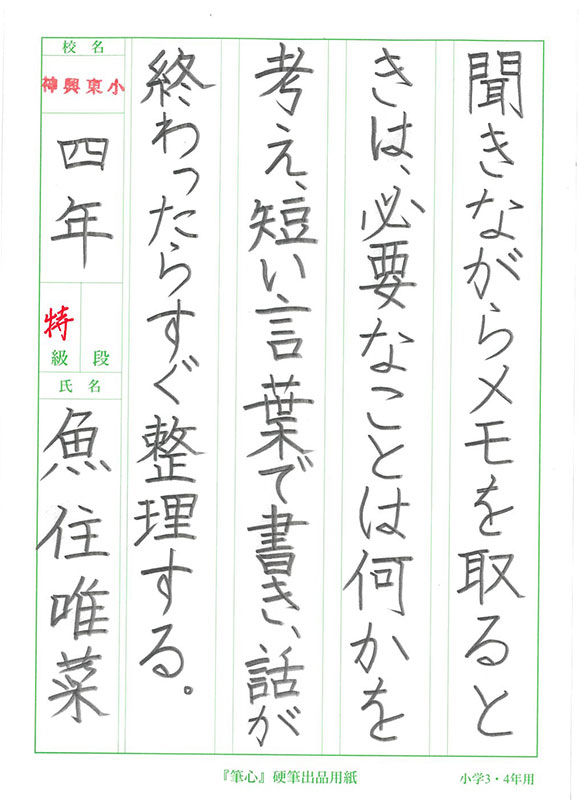 聞きながらメモを取ると
きは、必要なことは何かを
考え、短い言葉で書き、話が
終わったらすぐ整理する。
校名
神興東小
四年
特
級 段
氏名
魚住唯菜
『筆心』硬筆出品用紙
小学3・4年用